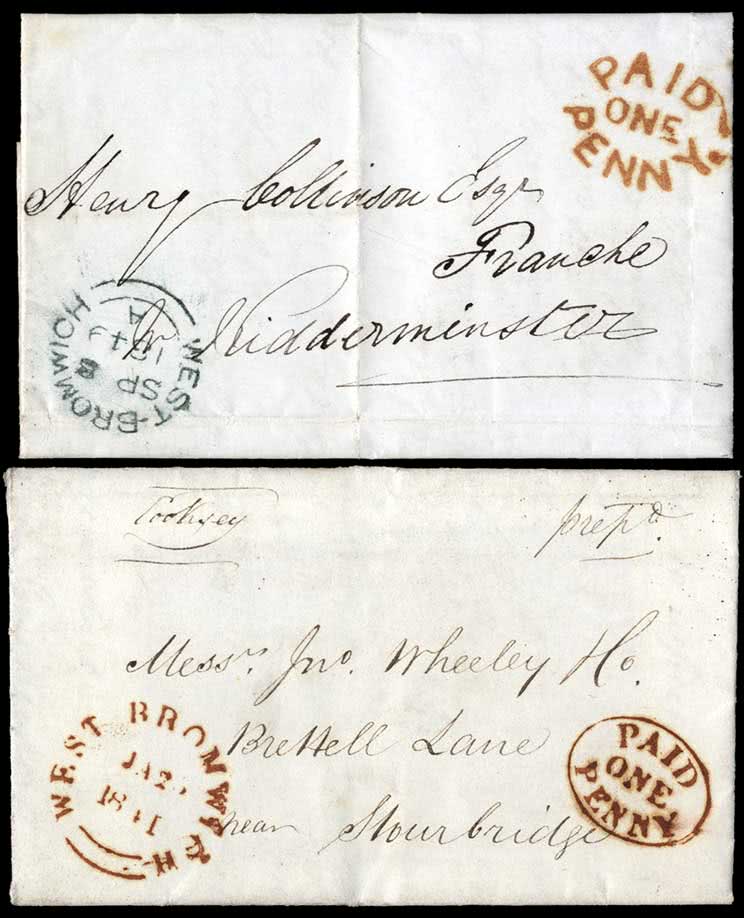 PAID
ONE
PENNY
Henry Collinson Esqr
Franche
Nr Kidderminster
WEST-BROMWICH
SP 8
A
Cooksey
prepd.
Messrs. Jno. Wheeley & Co.
Brettell Lane
near Stourbridge
WEST BROMWICH
JA 2
1841
PAID
ONE
PENNY